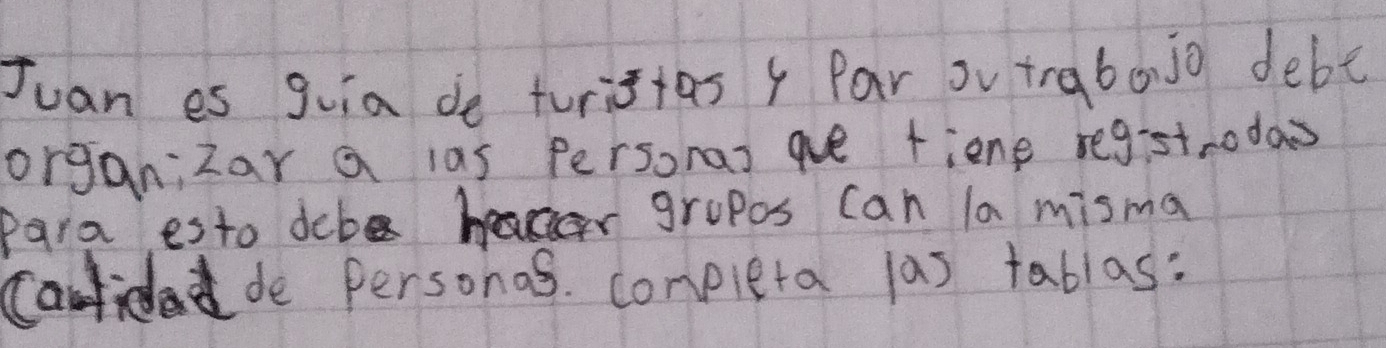 Juan es guia de turistas y Par su trabajo debe
organizar a las Personas que tiene registrodas
para esto debe hacer grupos can la misma
Cantidad de Personas. completa las tablas: